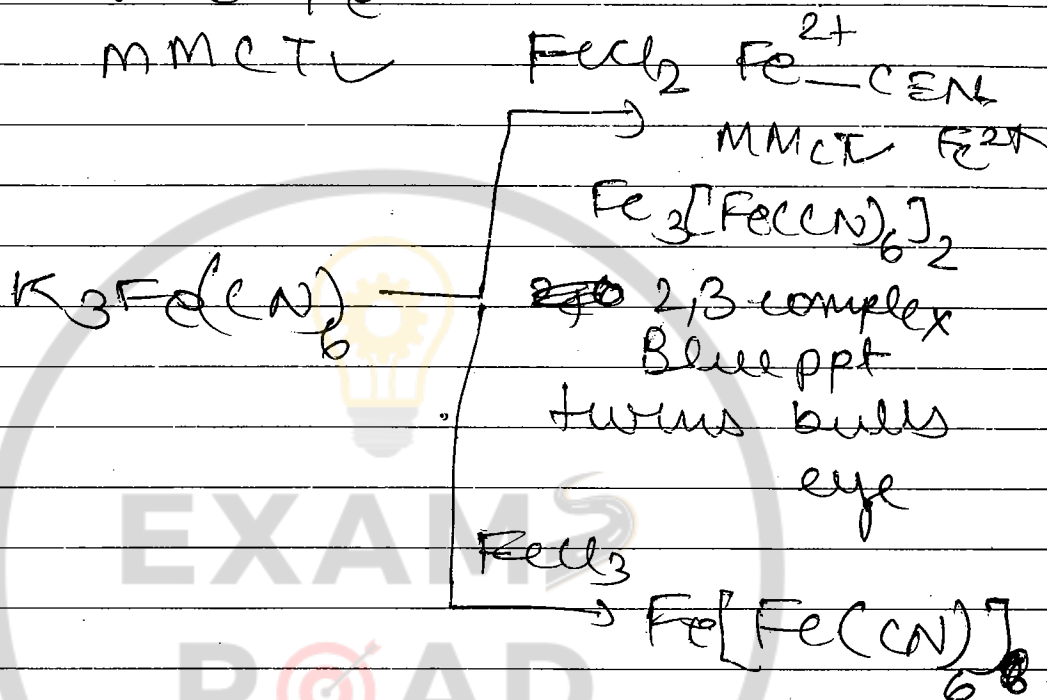 MMCT
FeCl₂ Fe²⁺—C≡N
MMCT Fe²⁺
Fe₃[Fe(CN)₆]₂
K₃Fe(CN)₆
2,3 complex
Blue ppt
turns bulls
eye
FeCl₃
Fe[Fe(CN)₆]
EXAM
ROAD